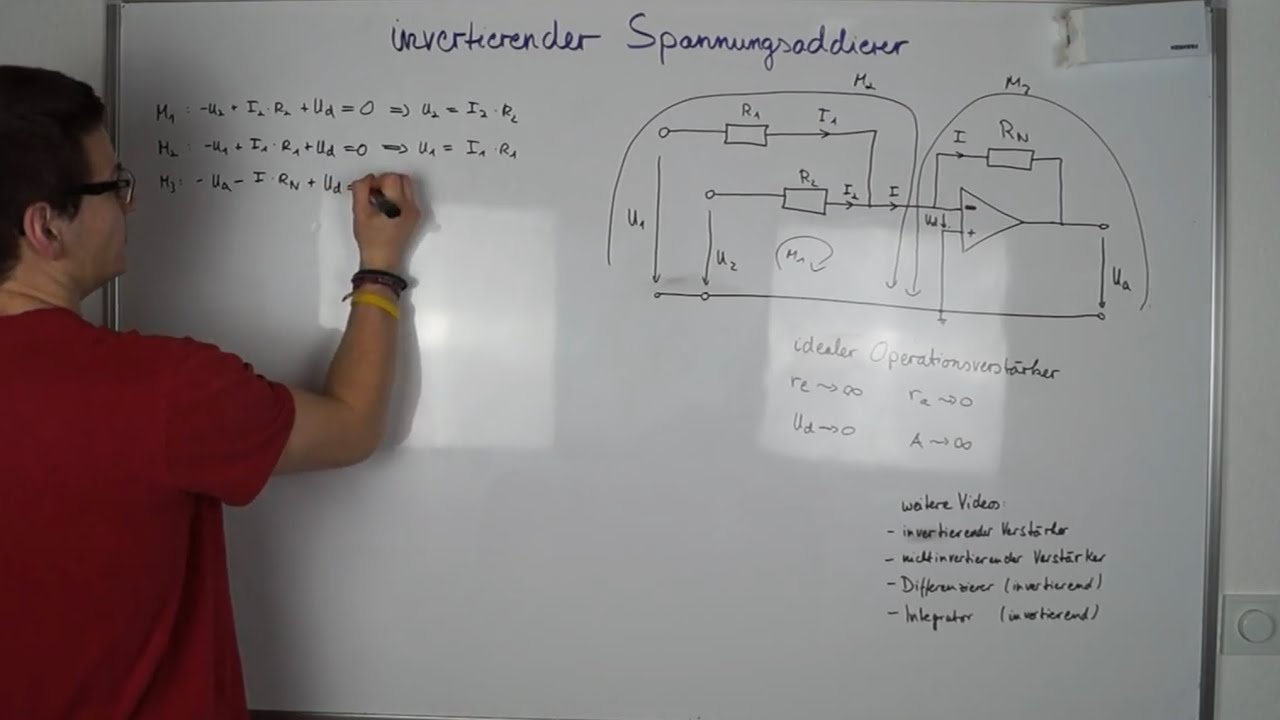 invertierender Spannungsaddierer
M₁ : -U₂ + I₂ · R₂ + Ud = 0 => U₂ = I₂ · R₂
M₂ : -U₁ + I₁ · R₁ + Ud = 0 => U₁ = I₁ · R₁
M₃ : - Ua - I · RN + Ud =
M₂
M₃
R₁
I₁
I
RN
R₂
I₂
I
-
Ud
+
U₁
U₂
M₁
Ua
idealer Operationsverstärker
re → ∞
ra → 0
Ud → 0
A → ∞
weitere Videos:
- invertierender Verstärker
- nichtinvertierender Verstärker
- Differenzierer (invertierend)
- Integrator (invertierend)